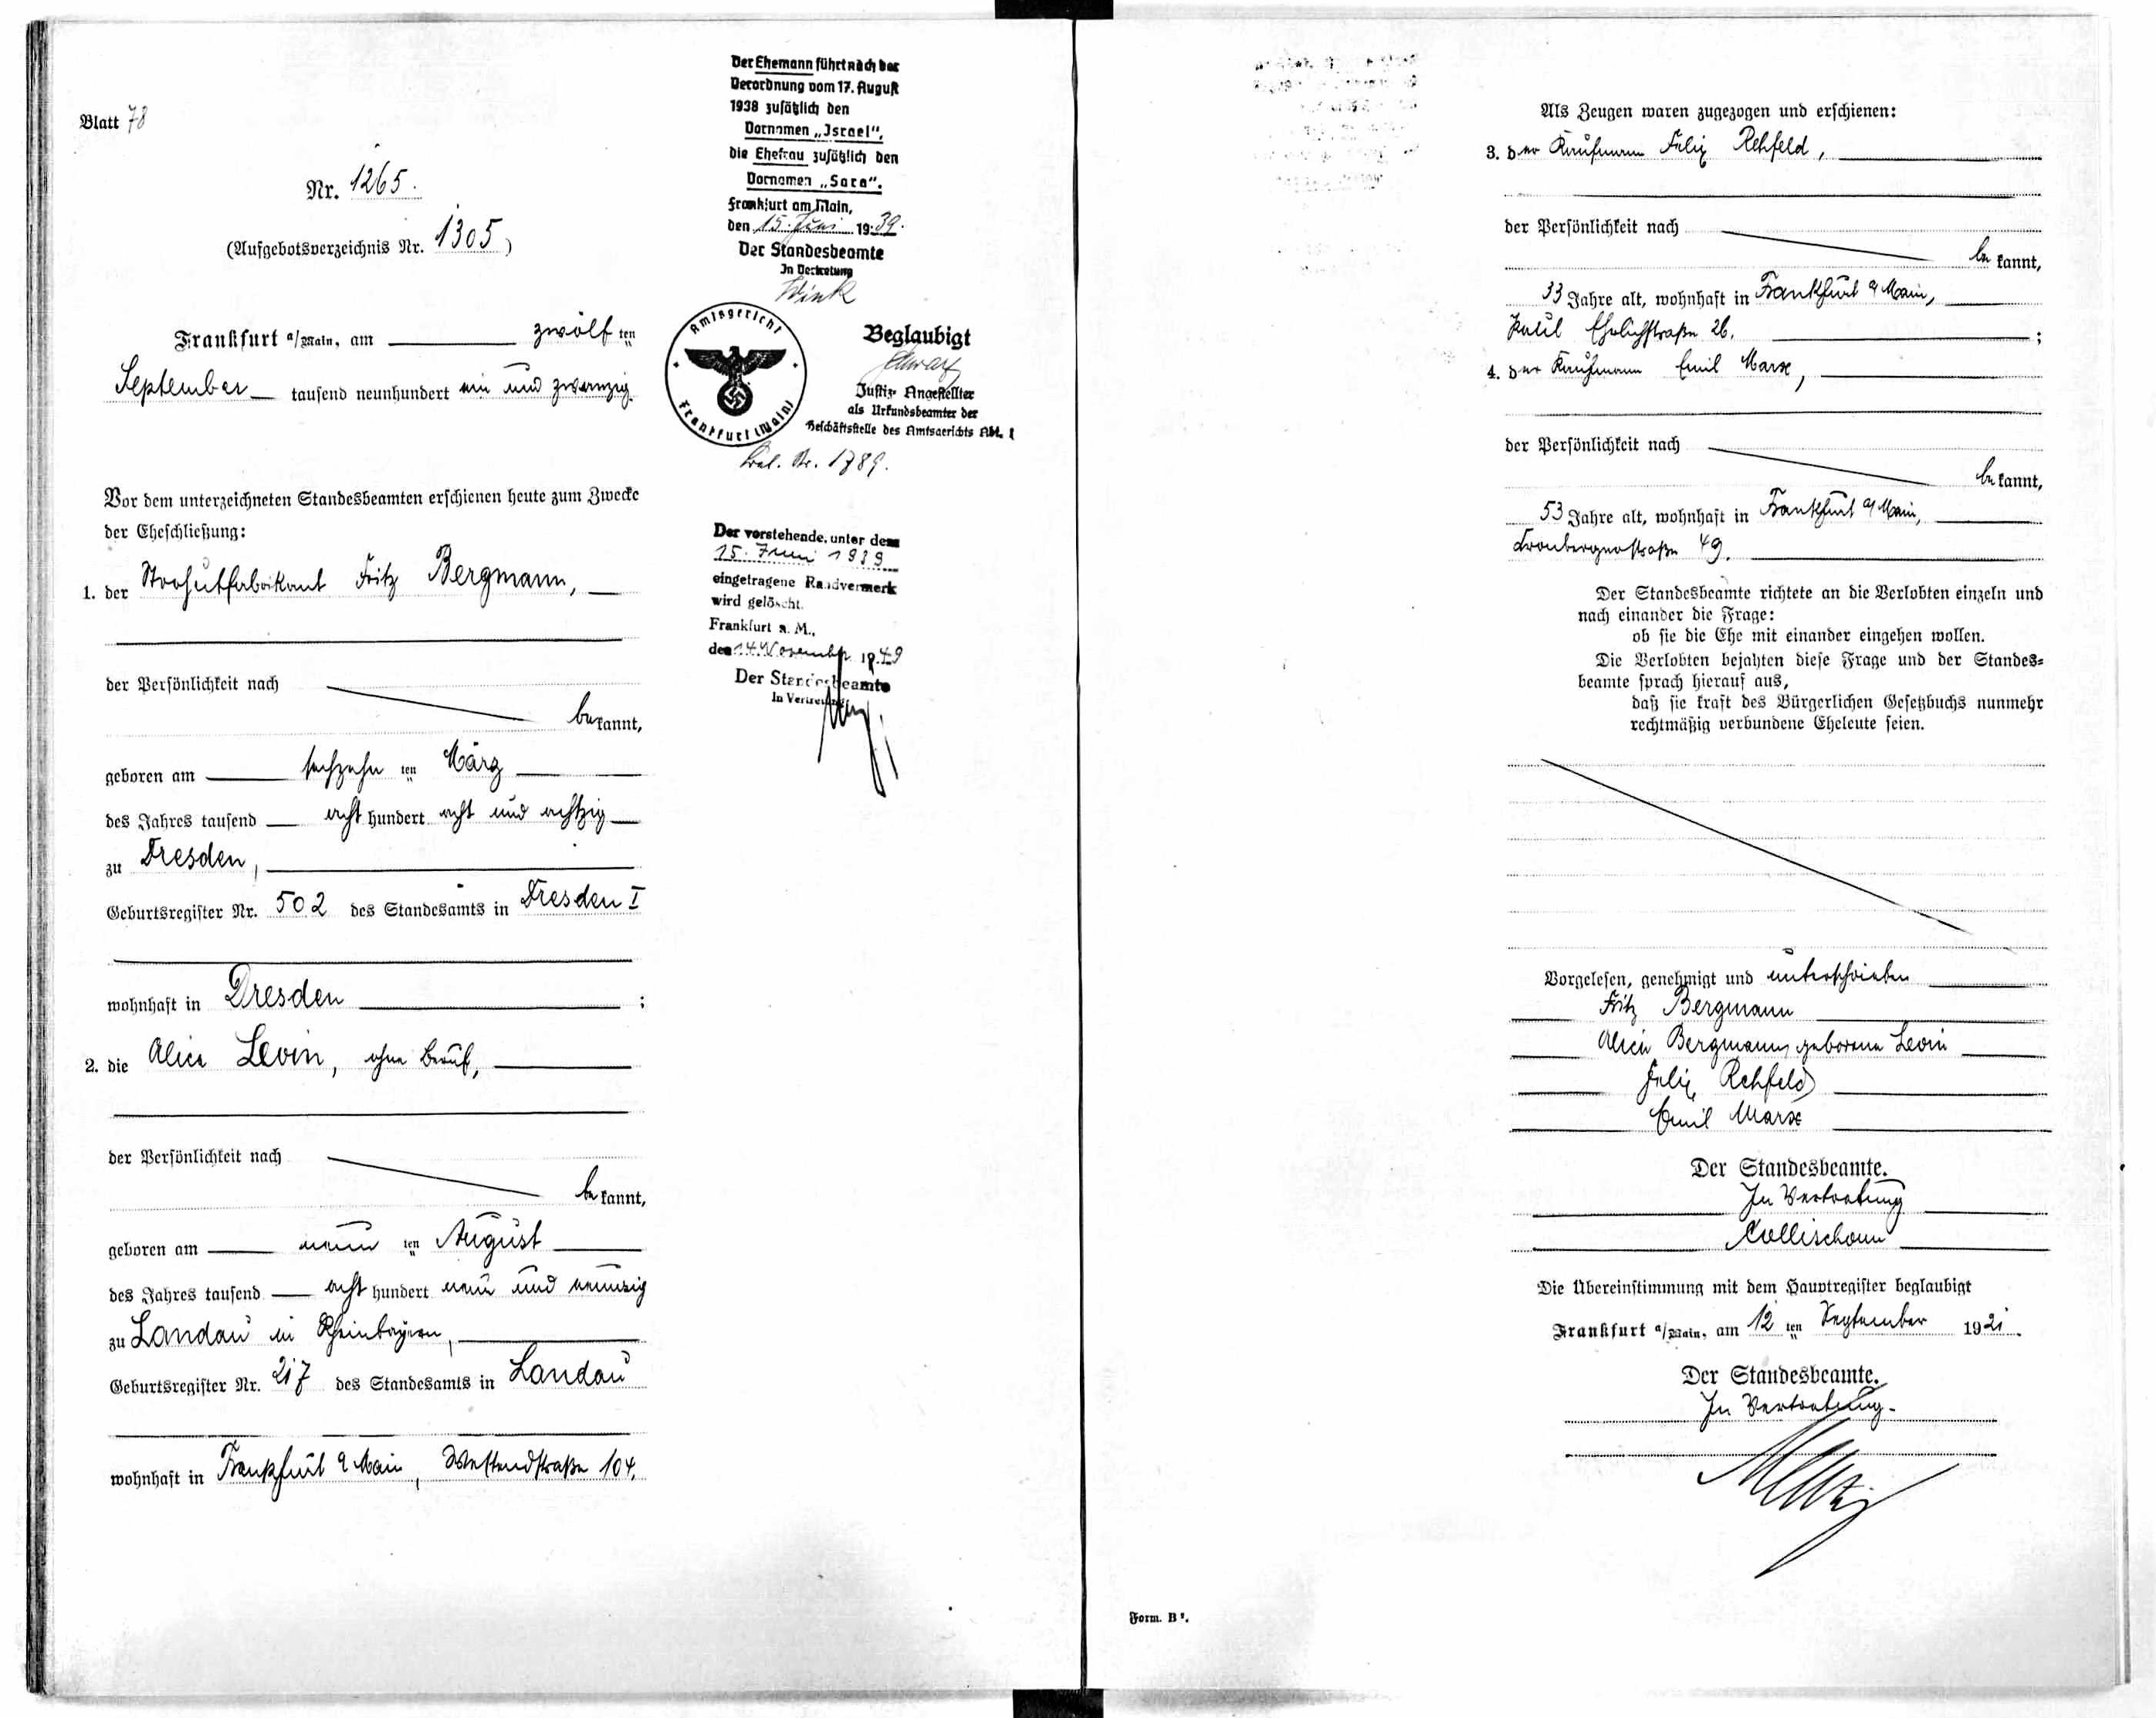 Blatt 78
Nr. 1265.
(Aufgebotsverzeichnis Nr. 1305)
Frankfurt a/Main, am zwölf ten
September tausend neunhundert ein und zwanzig
Vor dem unterzeichneten Standesbeamten erschienen heute zum Zwecke
der Eheschließung:
1. der Strohutfabrikant Fritz Bergmann,
der Persönlichkeit nach
bekannt,
geboren am sechzehn ten März
des Jahres tausend acht hundert acht und achtzig
zu Dresden,
Geburtsregister Nr. 502 des Standesamts in Dresden I
wohnhaft in Dresden ;
2. die Alice Levin, ohne Beruf,
der Persönlichkeit nach
bekannt,
geboren am neun ten August
des Jahres tausend acht hundert neun und neunzig
zu Landau in Rheinbayern,
Geburtsregister Nr. 217 des Standesamts in Landau
wohnhaft in Frankfurt a Main, Westendstraße 104.
Der Ehemann führt nach der
Verordnung vom 17. August
1938 zusätzlich den
Vornamen „Israel",
die Ehefrau zusätzlich den
Vornamen „Sara".
Frankfurt am Main,
den 15. Juni 1939.
Der Standesbeamte
In Vertretung
Wink
Amtsgericht
Frankfurt (Main)
Beglaubigt
Justiz-Angestellter
als Urkundsbeamter der
Geschäftsstelle des Amtsgerichts Abt. 1
Nr. 1789.
Der vorstehende, unter dem
15. Juni 1939
eingetragene Randvermerk
wird gelöscht.
Frankfurt a. M.,
den 14. November 1949
Der Standesbeamte
In Vertretung
Als Zeugen waren zugezogen und erschienen:
3. der Kaufmann Felix Rehfeld,
der Persönlichkeit nach
bekannt,
33 Jahre alt, wohnhaft in Frankfurt a Main,
Paul Ehrlichstraße 26. ;
4. der Kaufmann Emil Marx,
der Persönlichkeit nach
bekannt,
53 Jahre alt, wohnhaft in Frankfurt a Main,
Cronbergerstraße 49.
Der Standesbeamte richtete an die Verlobten einzeln und
nach einander die Frage:
ob sie die Ehe mit einander eingehen wollen.
Die Verlobten bejahten diese Frage und der Standes-
beamte sprach hierauf aus,
daß sie kraft des Bürgerlichen Gesetzbuchs nunmehr
rechtmäßig verbundene Eheleute seien.
Vorgelesen, genehmigt und unterschrieben
Fritz Bergmann
Alice Bergmann, geborene Levin
Felix Rehfeld
Emil Marx
Der Standesbeamte.
In Vertretung
Kollischonn
Die Übereinstimmung mit dem Hauptregister beglaubigt
Frankfurt a/Main, am 12 ten September 1921.
Der Standesbeamte.
In Vertretung.
Form. B².